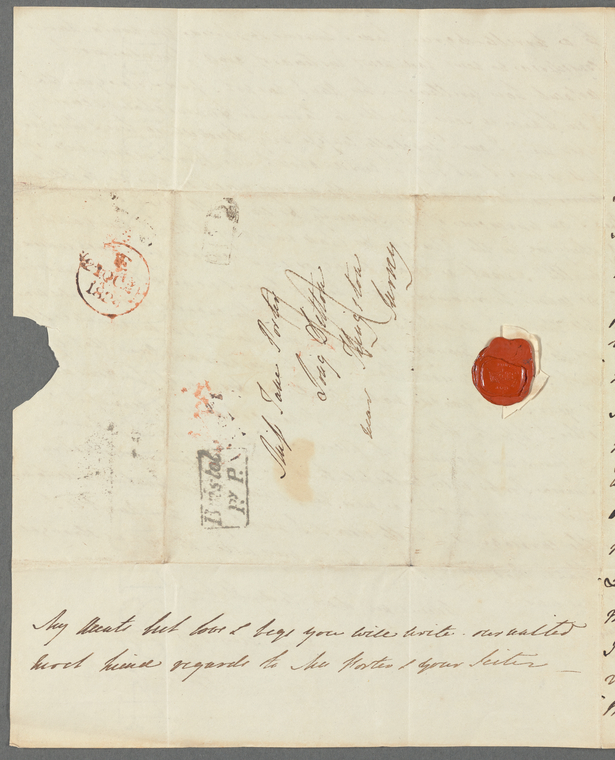 Miss Jane Porter
Long Ditton
near Kingston
Surrey
Bristol
Py P.
My Aunts best love & begs you will write - our united
most kind regards to Mrs Porter & your Sister -